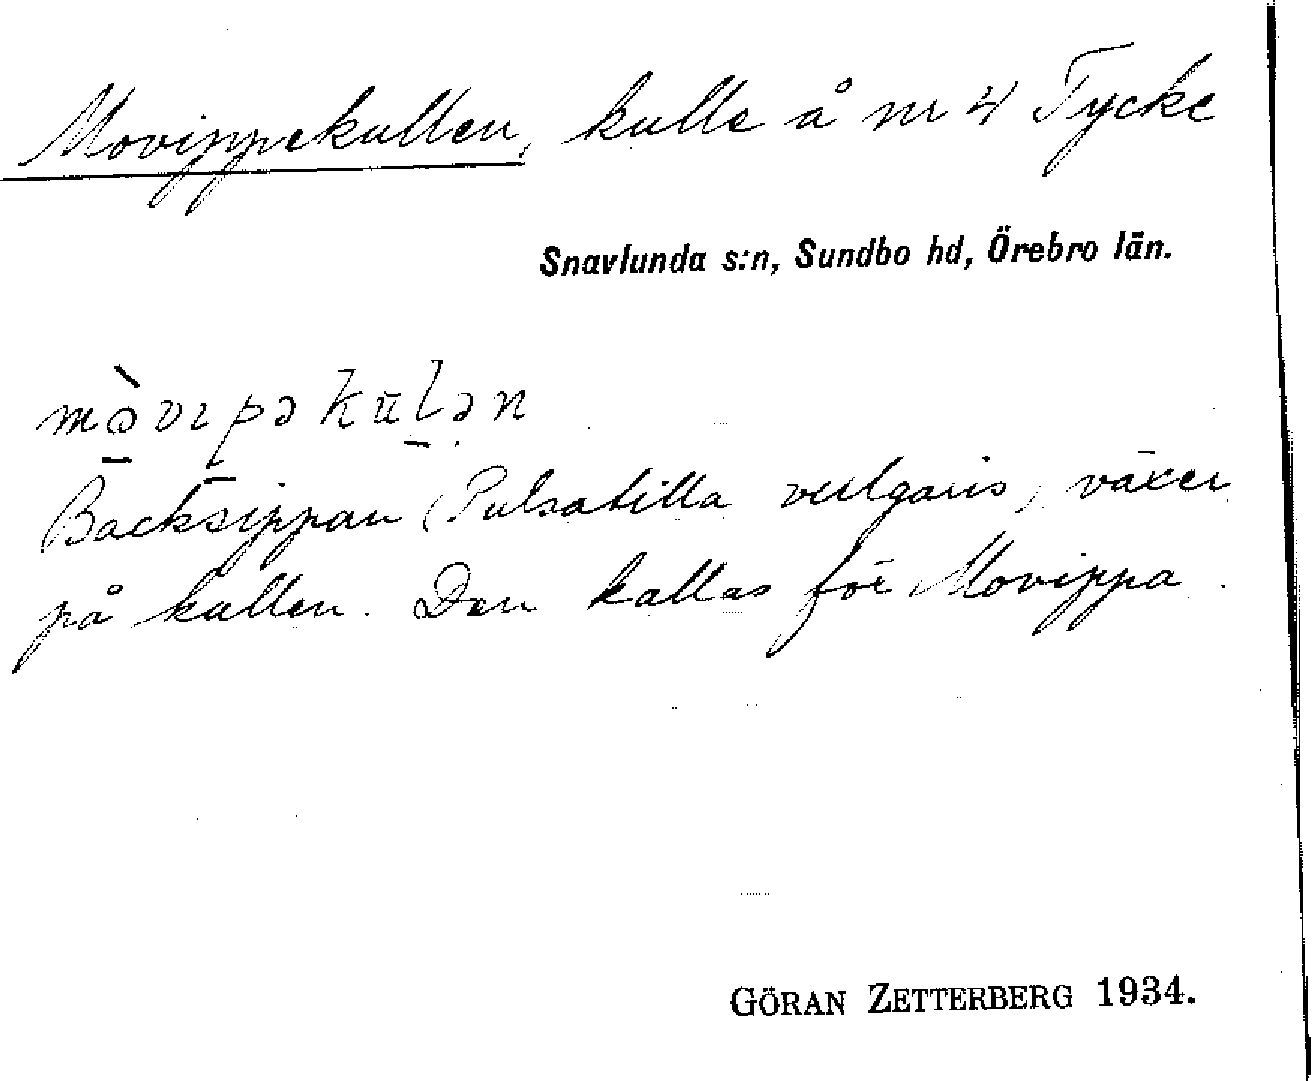 Movippekullen, kulle å nr 4 Tycke
Snavlunda s:n, Sundbo hd, Örebro län.
mòvıpəkūlən
Backsippan (Pulsatilla vulgaris) växer
på kullen. Den kallas för Movippa.
GÖRAN ZETTERBERG 1934.